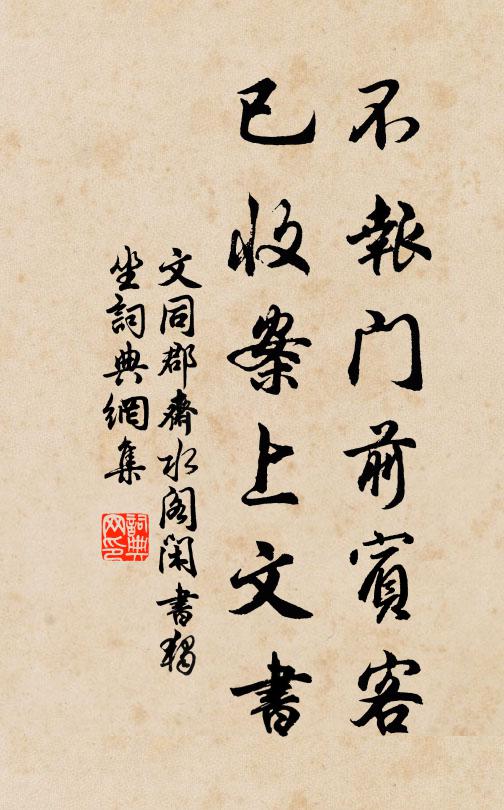 不報門前賓客
已收案上文書
文同郡齋水閣閑書獨
坐詞典網集
詞典
网印